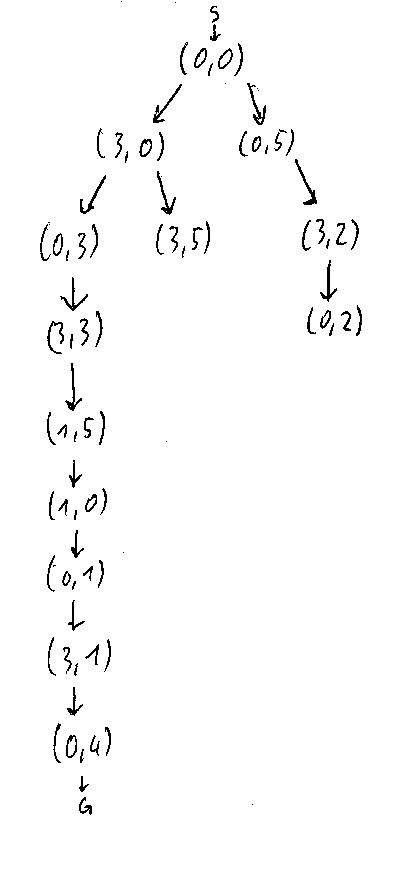 S
(0,0)
(3,0) (0,5)
(0,3) (3,5) (3,2)
(3,3) (0,2)
(1,5)
(1,0)
(0,1)
(3,1)
(0,4)
G